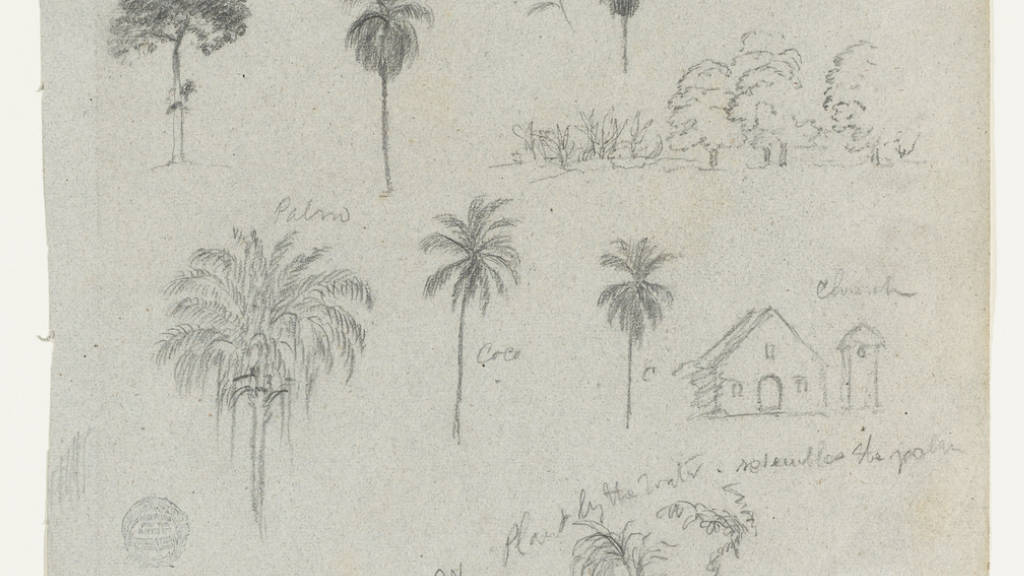 Palm
Coco
C
Church
Plant by the water - resembles the palm